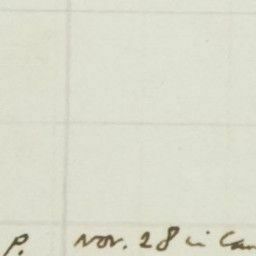 P. Nov. 28 in Cam